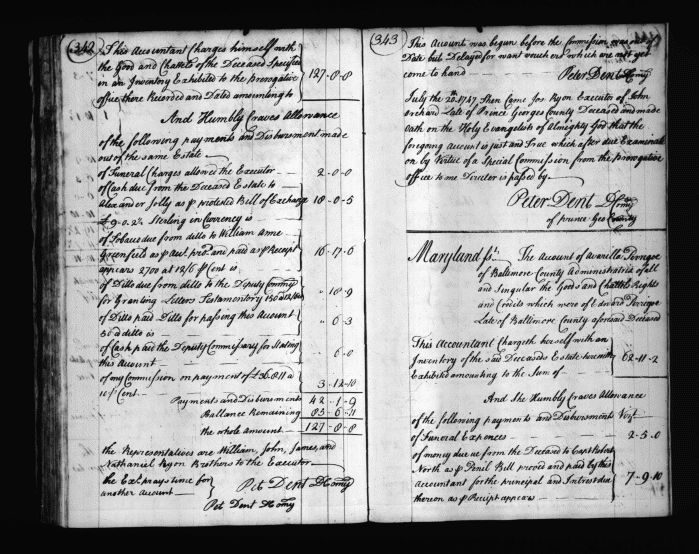 342
This Accountant Charges himself with
the Good and Chattels of the Deceased Specified
in an Inventory Exhibited to the prerogative
office there Recorded and Dated amounting to
127-8-8
And Humbly Craves Allowance
of the following payments and Disbursment made
out of the same Estate
of Funeral Charges allowed the Executor 2-0-0
of Cash due from the Deceased Estate to
Alexander Jolly as p protested Bill of Exchange 18-0-5
£9-0-2½ Sterling in Currency is
of Tobacco due from ditto to William
Greenfield as p Accot. prov'd and paid as p Receipt 16-17-6
appears 2700 at 12/6 p Cent is
of Ditto due from ditto to the Deputy Commy
for Granting Letters Testamentory " 18-9
of Ditto paid Ditto for passing this Account
50 a ditto is " 6-3
of Cash paid the Deputy Commissary for Stating
this Account " 6-0
of my Commission on payment of £36-8-11 a
10 p Cent 3-12-10
Payments and Disbursments 42-1-9
Ballance Remaining 85-6-11
the whole Amount 127-8-8
the Representatives are William, John, James, and
Nathaniel Ryon Brothers to the Executor
the Exr. prays time for
another Account
Pet Dent DComy
Pet Dent DComy
343
This Account was begun before the Commission was out of
Date but Delayed for want vouchers which are not yet
come to hand Peter Dent DComy
July the 20. 1747 Then Came Jos Ryon Executor of John
Orchard Late of Prince Georges County Deceased and made
Oath on the Holy Evangelists of Almighty God that the
foregoing Account is just and True which after due Examinate
on by Virtue of a Special Commission from the prerogative
office to me Director is passed by
Peter Dent DComy
of prince Geo County
Maryland ss. The Account of Avarilla Perregoe
of Baltimore County Administratrix of all
and Singular the Goods and Chattels Rights
and Credits which were of Edward Perregoe
Late of Baltimore County aforesaid Deceased
This Accountant Chargeth herself with an
Inventory of the said Deceaseds Estate herewith
Exhibited amounting to the Sum of 62-11-2
And She Humbly Craves Allowance
of the following payments and Disbursments Vizt
of Funeral Expences 2-5-0
of money due from the Deceased to Capt Robert
North as p Penal Bill proved and paid by this
Accountant for the principal and Intrest due
thereon as p Receipt appears 7-9-10